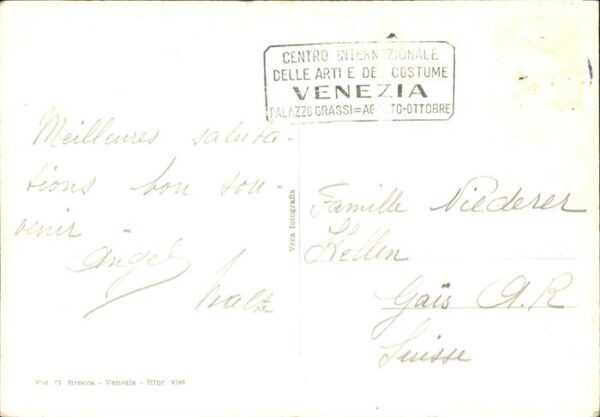 CENTRO INTERNAZIONALE
DELLE ARTI E DEL COSTUME
VENEZIA
PALAZZO GRASSI=AGOSTO-OTTOBRE
Meilleures saluta-
tions bon sou-
venir
Angel
Walte
Vera fotografia
Famille Niederer
Kellen
Gais A.R
Suisse
Fot. G. Brocca - Venezia - Ripr. viet